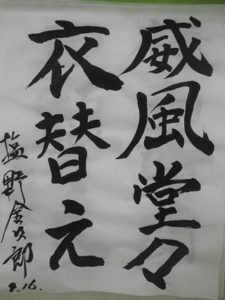 威風堂々
衣替え
塩野金次郎
9.16.